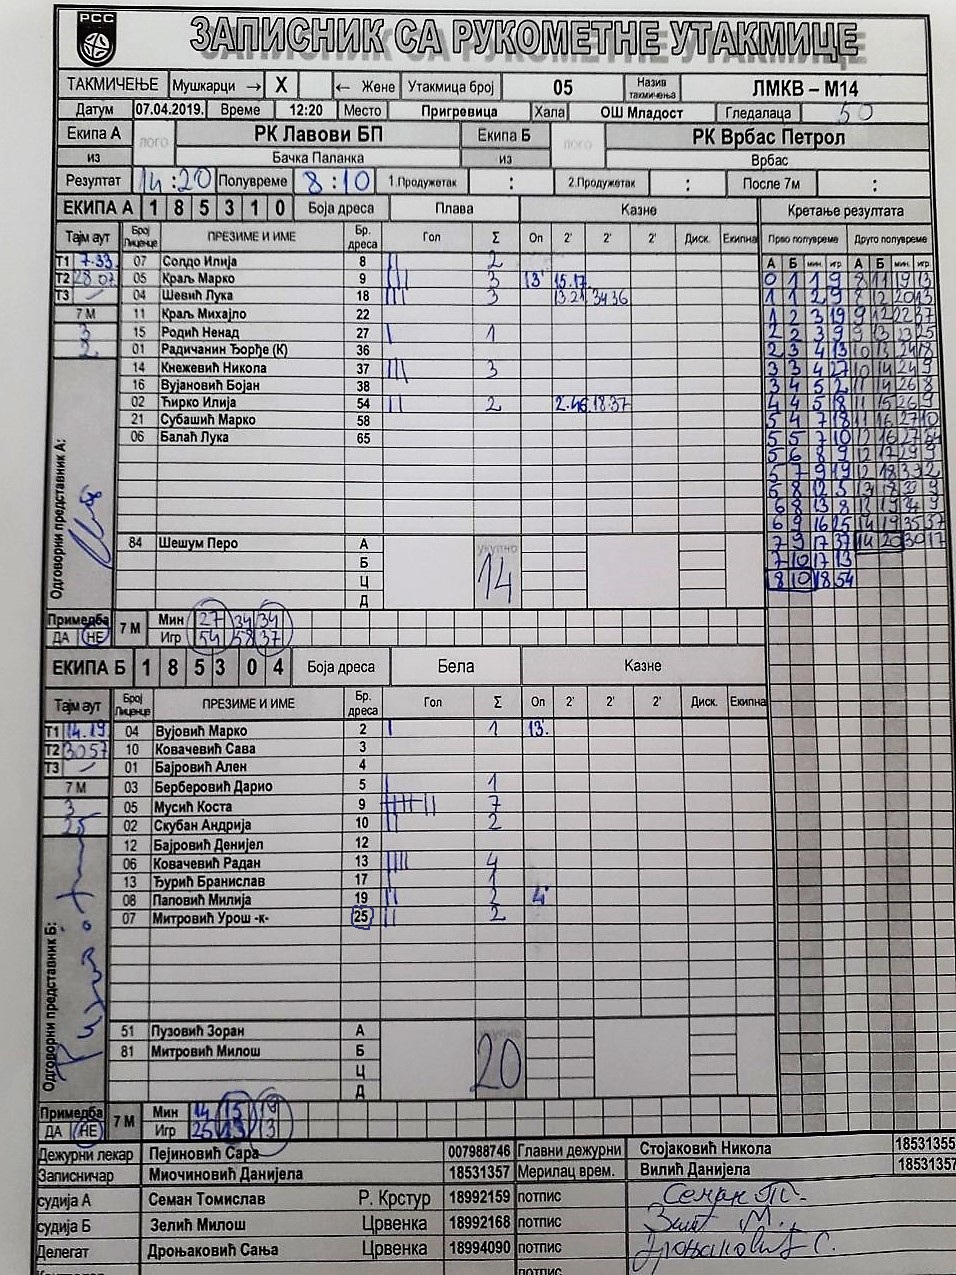 РСС
ЗАПИСНИК СА РУКОМЕТНЕ УТАКМИЦЕ
ТАКМИЧЕЊЕ Мушкарци → X ← Жене Утакмица број 05 Назив такмичења ЛМКВ – М14
Датум 07.04.2019. Време 12:20 Место Пригревица Хала ОШ Младост Гледалаца 50
Екипа А лого РК Лавови БП Екипа Б лого РК Врбас Петрол
из Бачка Паланка из Врбас
Резултат 14:20 Полувреме 8:10 1.Продужетак : 2.Продужетак : После 7м :
ЕКИПА А 1 8 5 3 1 0 Боја дреса Плава Казне Кретање резултата
Тајм аут Број Лиценце ПРЕЗИМЕ И ИМЕ Бр. дреса Гол Σ Оп 2' 2' 2' Диск. Екипна Прво полувреме Друго полувреме
А Б мин. игр. А Б мин. игр.
Т1 7.33 07 Солдо Илија 8 || 2
Т2 28.07 05 Краљ Марко 9 ||| 3 13' 15.17
Т3 – 04 Шевић Лука 18 ||| 3 13.21 34.36
7 М 11 Краљ Михајло 22
3 15 Родић Ненад 27 | 1
2 01 Радичанин Ђорђе (К) 36
14 Кнежевић Никола 37 ||| 3
16 Вујановић Бојан 38
02 Ћирко Илија 54 || 2 2.46 18.37
21 Субашић Марко 58
06 Балаћ Лука 65
0 1 1 9 8 11 19 13
1 1 2 9 8 12 20 13
1 2 3 19 9 12 22 37
2 2 3 9 9 13 25
2 3 4 13 10 13 24 18
3 3 4 27 10 14 24 9
3 4 5 2 11 14 26 8
4 4 5 18 11 15 26 9
5 4 7 18 11 16 27 10
5 5 7 10 12 16 27 54
5 6 8 9 12 17 29 9
5 7 9 19 12 18 33 2
5 8 12 5 13 18 33 9
6 8 13 8 13 19 34 9
6 9 16 25 14 19 35 37
7 9 17 37 14 20 30 17
7 10 17 13
8 10 18 54
Одговорни представник А:
84 Шешум Перо А укупно 14
Б
Ц
Д
Примедба 7 М Мин 27 34 34
ДА НЕ Игр 54 58 37
ЕКИПА Б 1 8 5 3 0 4 Боја дреса Бела Казне
Тајм аут Број Лиценце ПРЕЗИМЕ И ИМЕ Бр. дреса Гол Σ Оп 2' 2' 2' Диск. Екипна
Т1 14.19 04 Вујовић Марко 2 | 1 13'
Т2 30.57 10 Ковачевић Сава 3
Т3 – 01 Бајровић Ален 4
7 М 03 Берберовић Дарио 5 | 1
3 05 Мусић Коста 9 |||| || 7
25 02 Скубан Андрија 10 || 2
12 Бајровић Денијел 12
06 Ковачевић Радан 13 |||| 4
13 Ђурић Бранислав 17 | 1
08 Паповић Милија 19 || 2 4'
07 Митровић Урош -к- 25 || 2
Одговорни представник Б:
51 Пузовић Зоран А укупно 20
81 Митровић Милош Б
Ц
Д
Примедба 7 М Мин 14 15 19
ДА НЕ Игр 25 13 13
Дежурни лекар Пејиновић Сара 007988746 Главни дежурни Стојаковић Никола 18531355
Записничар Миочиновић Данијела 18531357 Мерилац врем. Вилић Данијела 18531357
судија А Семан Томислав Р. Крстур 18992159 потпис Семан Т.
судија Б Зелић Милош Црвенка 18992168 потпис
Делегат Дроњаковић Сања Црвенка 18994090 потпис Дроњаковић С.
потпис